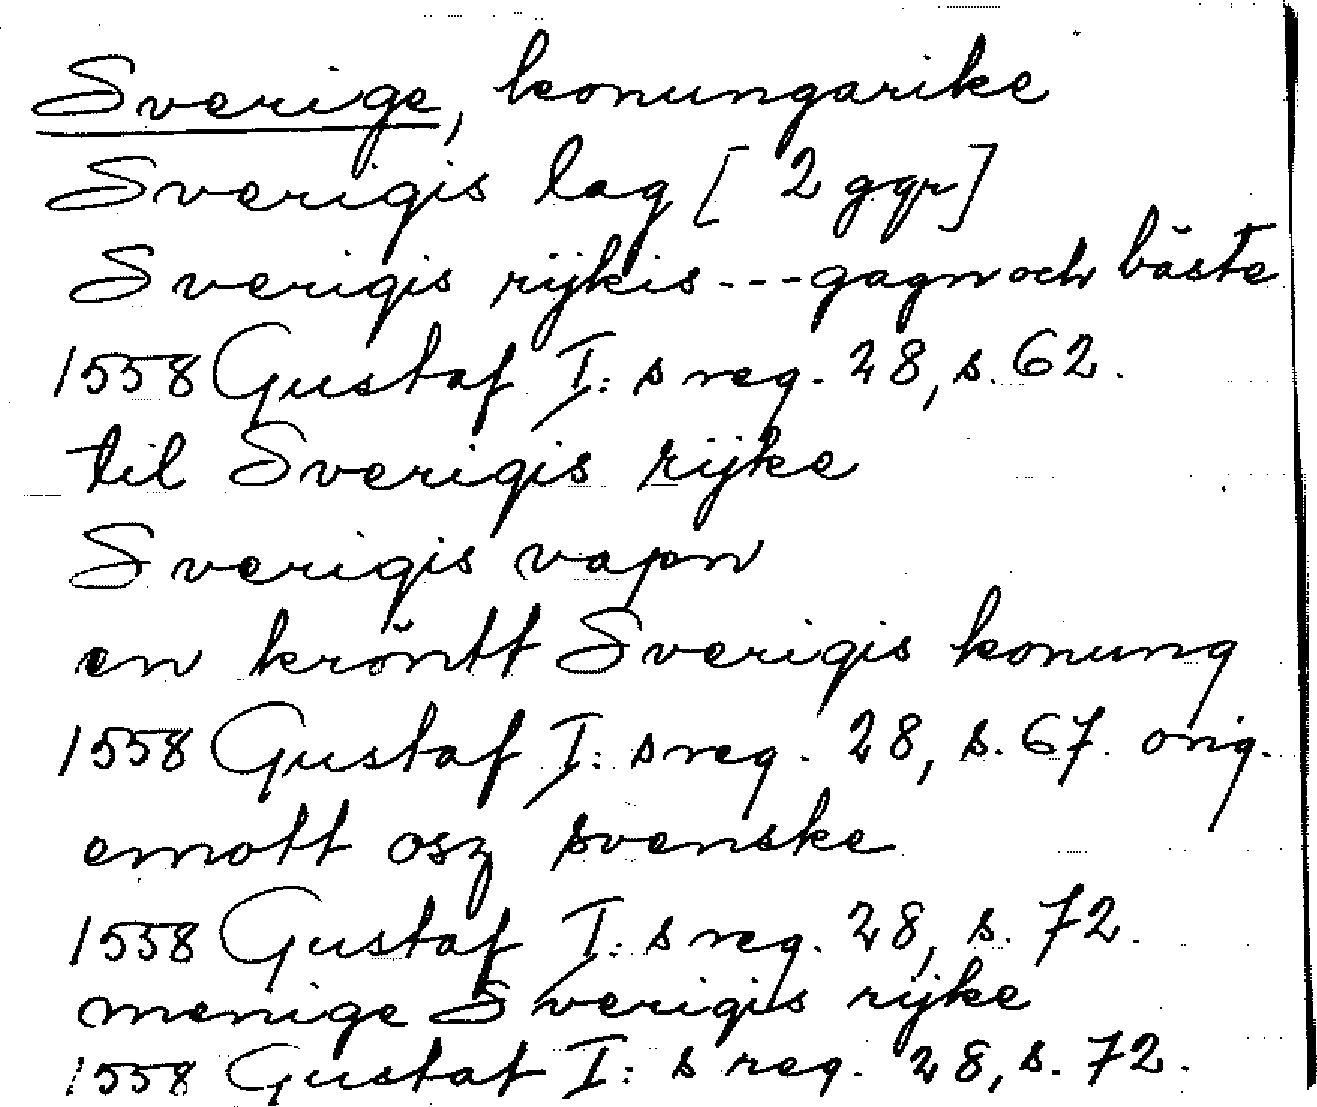 Sverige, konungarike
Sverigis lag [2 ggr]
Sverigis rijkis---gagn och bäste
1558 Gustaf I:s reg. 28, s. 62.
til Sverigis rijke
Sverigis vapn
en kröntt Sverigis konung
1558 Gustaf I:s reg. 28, s. 67. orig.
emott osz svenske
1558 Gustaf I:s reg. 28, s. 72.
menige Sverigis rijke
1558 Gustaf I:s reg. 28, s. 72.